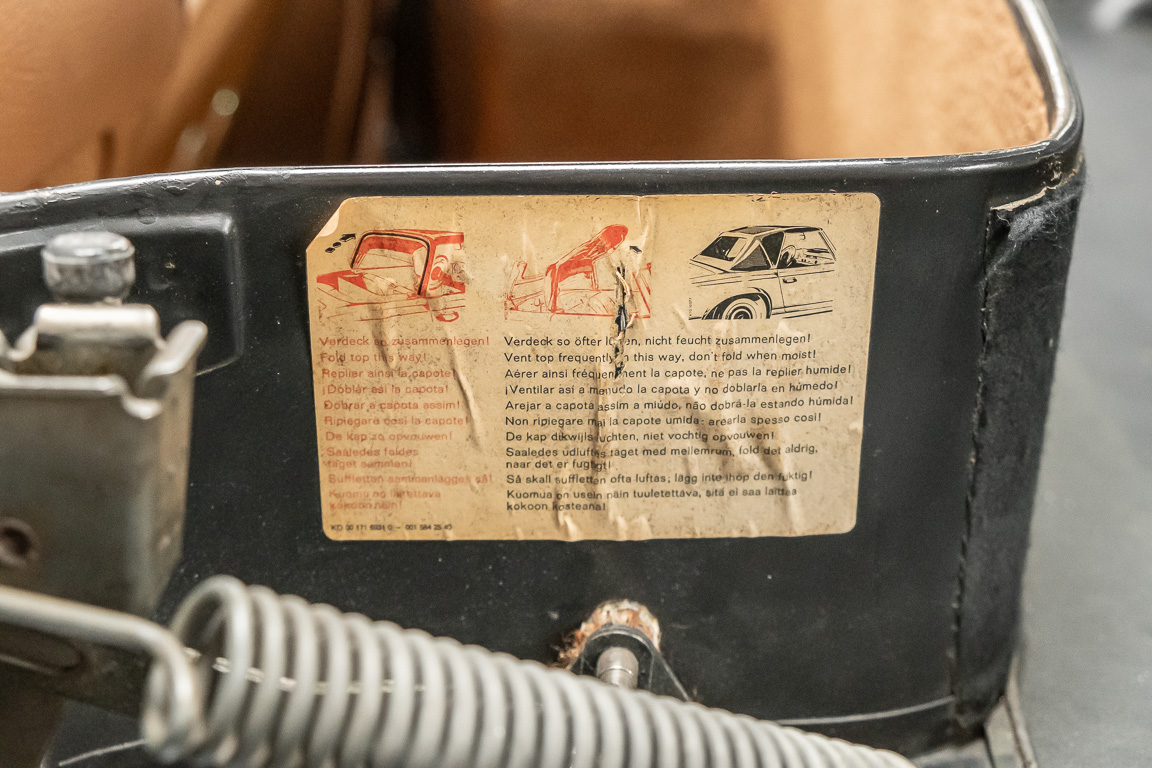 Verdeck so zusammenlegen!
Fold top this way!
Replier ainsi la capote!
¡Doblar asi la capota!
Dobrar a capota assim!
Ripiegare cosi la capote!
De kap zo opvouwen!
Saaledes foldes
taget sammen!
Suffletten sammanlägges så!
Kuomu on laitettava
kokoon näin!
Verdeck so öfter lüften, nicht feucht zusammenlegen!
Vent top frequently in this way, don't fold when moist!
Aérer ainsi fréquemment la capote, ne pas la replier humide!
¡Ventilar asi a menudo la capota y no doblarla en húmedo!
Arejar a capota assim a miúdo, não dobrá-la estando húmida!
Non ripiegare mai la capote umida: arearla spesso cosi!
De kap dikwijls luchten, niet vochtig opvouwen!
Saaledes udluftes taget med mellemrum, fold det aldrig,
naar det er fugtigt!
Så skall suffletten ofta luftas; lägg inte ihop den fuktig!
Kuomua on usein näin tuuletettava, sitä ei saa laittaa
kokoon kosteana!
KD 00 171 6931 0 –